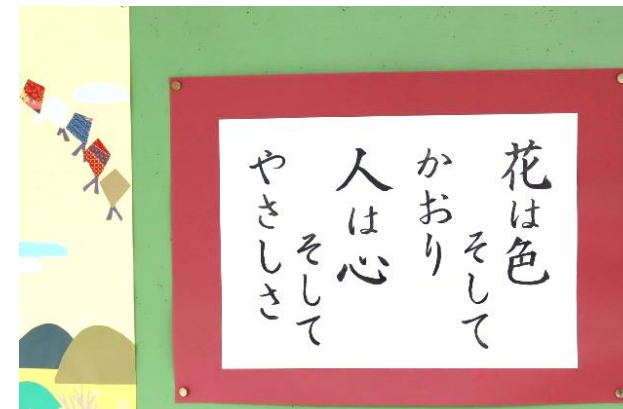 花は色
そして
かおり
人は心
そして
やさしさ